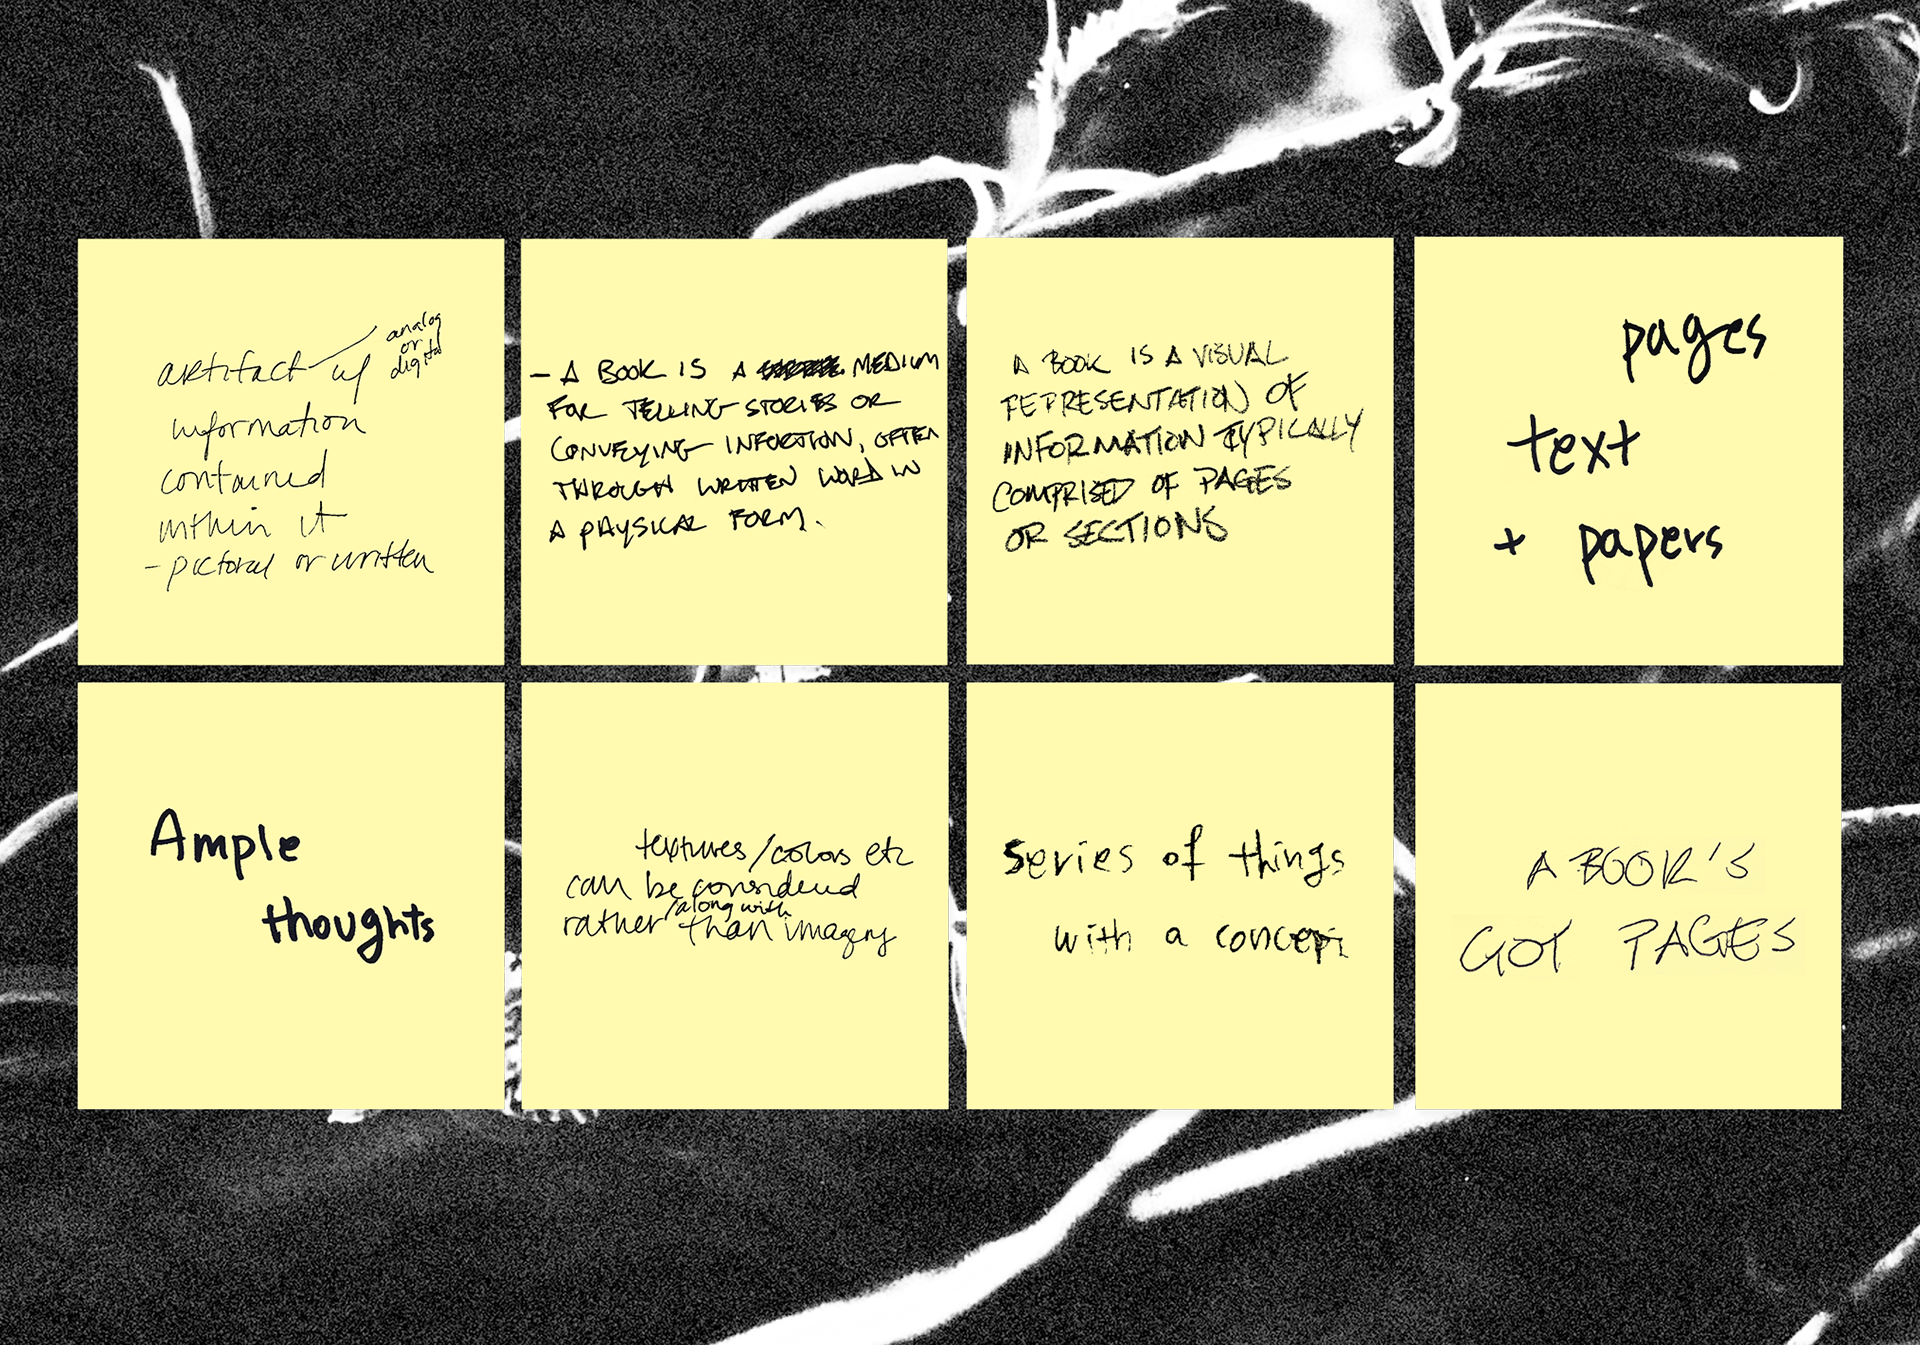 artifact w/
analog
or
digital
information
contained
within it
- pictoral or written
- A BOOK IS A MEDIUM
FOR TELLING STORIES OR
CONVEYING INFORTION, OFTEN
THROUGH WRITTEN WORD IN
A PHYSICAL FORM.
A BOOK IS A VISUAL
REPRESENTATION OF
INFORMATION TYPICALLY
COMPRISED OF PAGES
OR SECTIONS
pages
text
+ papers
Ample
thoughts
textures/colors etc
can be considered
/along with
rather than imagery
series of things
with a concept
A BOOK'S
GOT PAGES